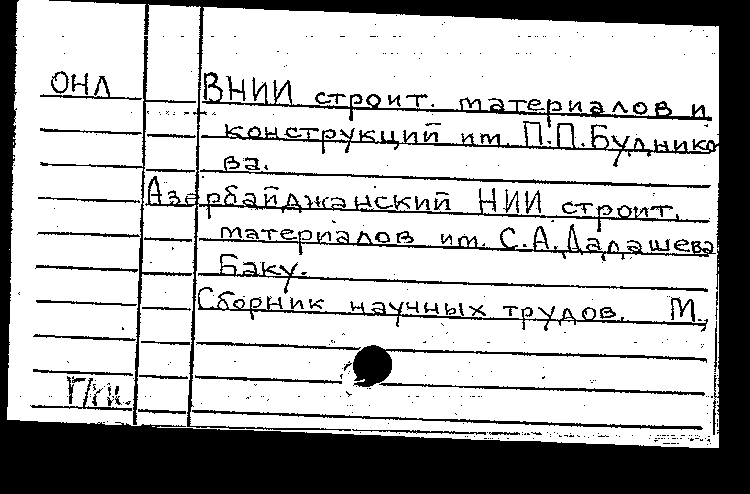 ОНЛ ВНИИ строит. материалов и
конструкций им. П.П.Буднико
ва.
Азербайджанский НИИ строит.
материалов им. С.А.Дадашева
Баку.
Сборник научных трудов. М.,